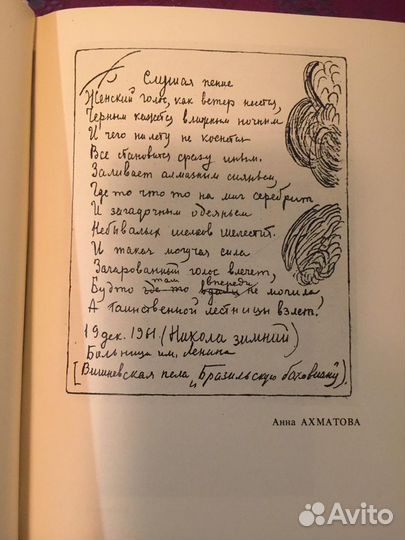 Слушая пение
Женский голос, как ветер несется,
Черным кажется влажным ночным
И чего на лету не коснется
Все становится сразу иным.
Заливает алмазным сияньем,
Где то что то на миг серебрит
И загадочным одеяньем
Небывалых шелков шелестит.
И такая могучая сила
Зачарованный голос влечет,
Будто там впереди не могила,
А таинственной лестницы взлет.
19 дек. 1961 (Никола зимний)
Больница им. Ленина
[Вишневская пела „Бразильскую бахиану").
Анна АХМАТОВА
Avito